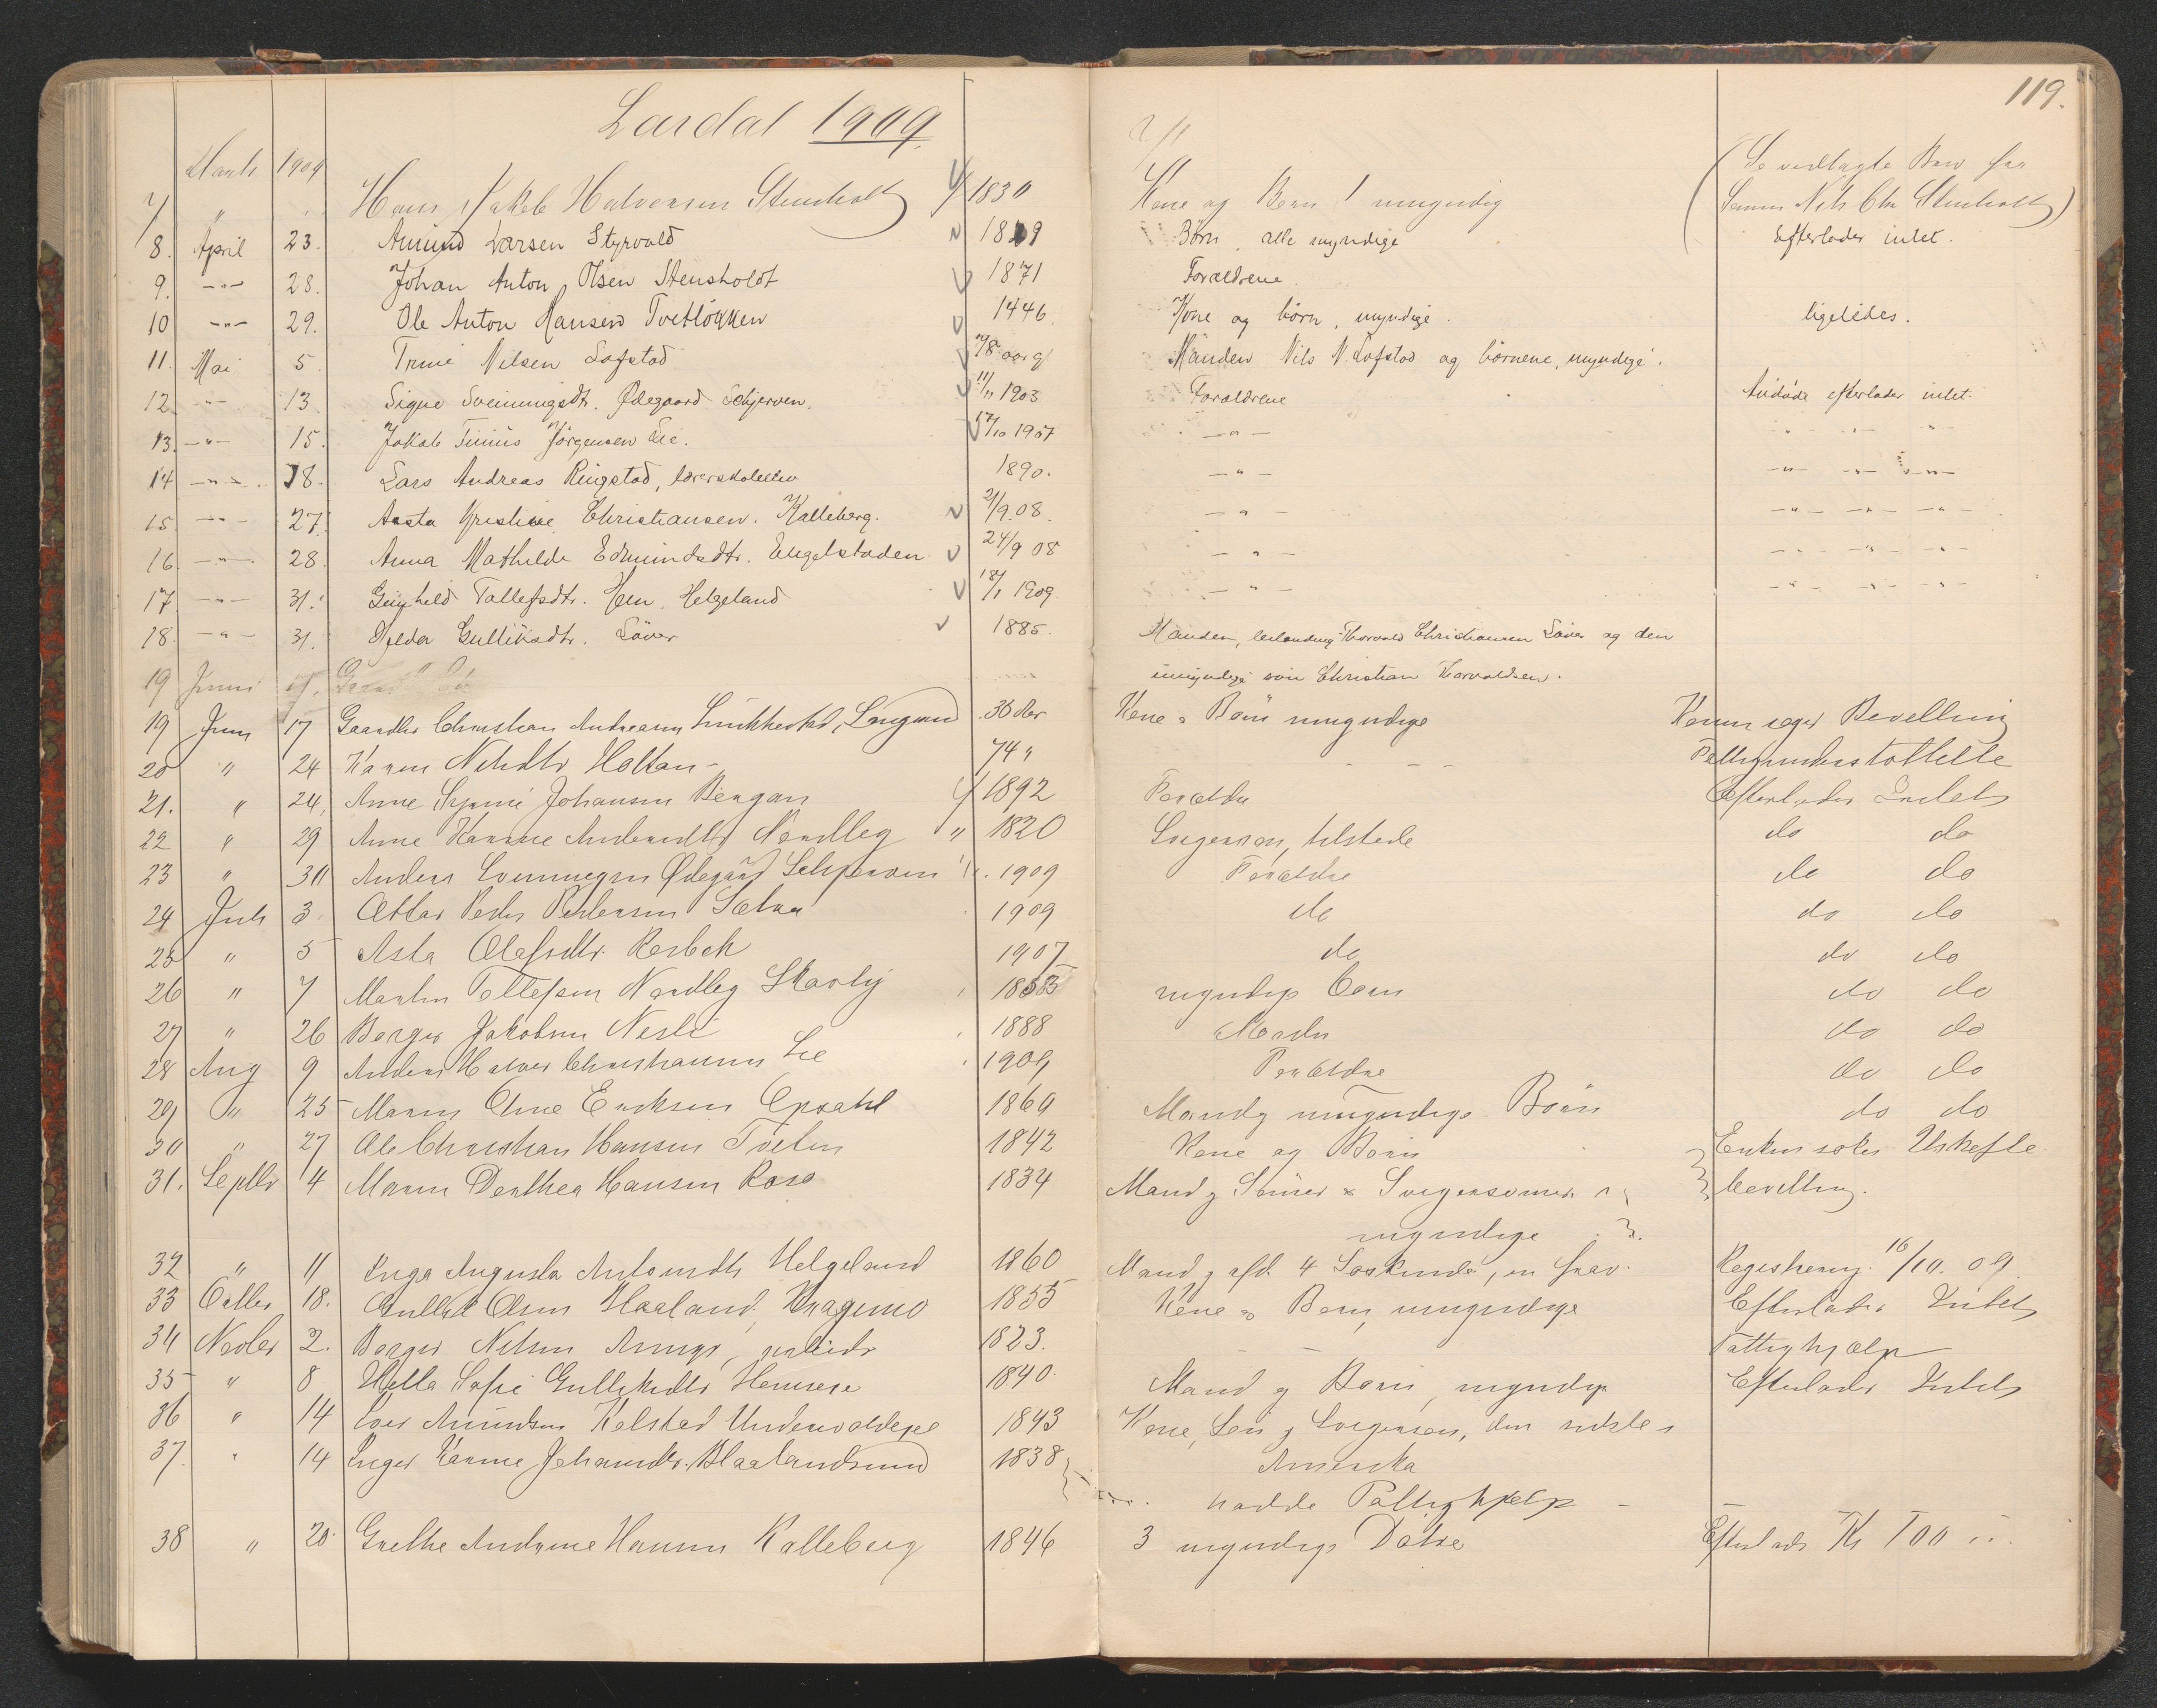 119.
Lardal 1909
Marts 1909
7/ " Hans Jakob Halvorsen Stensholt 1830 Kone og Børn 1 umyndig (Se vedlagte Brev fra
Sønnen Nils Chr Stensholt)
8. April 23. Amund Larsen Styrvold 1819 Børn, alle myndige Efterlader intet.
9. -"- 28. Johan Anton Olsen Stensholdt 1871 Forældrene
10 -"- 29. Ole Anton Hansen Tvetløkken 1446 Kone og børn, myndige. ligeledes.
11. Mai 5. Trine Nilsen Lofstad 78 aar gl Manden Nils N. Lofstad og børnene, myndige.
12. -"- 13. Signe Sveinungsdt. Ødegaard Schjerven. 11/11 1903 Forældrene Afdøde efterlader intet.
13. -"- 15. Jakob Timius Jørgensen Lie. 17/10 1907 -"- -"- -"- -"-
14 -"- 18. Lars Andreas Ringstad, lærerskoleelev 1890. -"- -"- -"- -"-
15. -"- 27. Aasta Kristine Christiansen. Kalleberg. 2/9.08. -"- -"- -"- -"-
16 -"- 28. Anna Mathilde Edmundsdtr. Engelstaden 24/9 08 -"- -"- -"- -"-
17 -"- 31. Gunhild Tollefsdtr. Hem, Helgeland 18/1 1909 -"- -"- -"- -"-
18. -"- 31. Hilda Gulliksdtr. Løver 1885. Manden, leilænding Thorvald Christiansen Løver og den
umyndige søn Christian Torvaldsen.
19 Juni 17.
19 Juni 17 Gaardbr Christian Andreasen Langrønd 36 Aar Kone & Børn umyndige Konen søger Bevilling
20 " 24 Karen Nilsdtr Holtan - 74 " - - - Fattigunderstøttelse
21. " 24, Anne Johansen Bergan 1892 Forældre Efterlader Indets
22 " 29 Anne Karine Andersdtr Nordleg " 1820 Svigersøn, tilstede do do
23 " 30 Anders Sveinungsen Ødegård Schjerven 1909 Forældre do do
24 Juli 3. Peder Pedersen Sætra 1909 do do do
25 " 5 Asta Olafsdtr. Rosbek 1907 do do do
26 " 7 Martin Tollefsen Nordleg Skarby 1855 myndige Børn do do
27 " 26 Borger Jakobsen 1888 Moder do do
28 Aug 9 Anders Halvor Christiansen Lie 1909 Forældre do do
29 " 25 Maren Oline Eriksen Opsahl 1869 Mand og umyndige Børn do do
30 " 27 Ole Christian Hansen Tveten 1842 Kone og Børn Enken søker Uskifte
31. Septbr 4 Maren Dorthea Hansen 1834 Mand, Sønner & Svigersønner bevilling.
myndige
32 " 11 Inga Augusta Antonsdtr Helgeland 1860 Mand og afd. 4 Søskende, en frav. Registrering 16/10. 09
33 Octbr 18. Gullik Olsen Haaland, 1855 Kone & Børn, umyndige Efterlader Intets
34 Novbr 2. Borger Nilsen 1823. - - Fattighjælp
35 " 8 Sofie Gulliksdtr Hemsere 1840. Mand og Børn, myndige Efterlader Intets
36 " 14 Iver Amundsen Kolstad 1843 Kone, Søn og Svigersøn, den sidste i
37. " 14 Inger Karine Johansdtr. Haalandsrund 1838 Amerika
hadde Fattighjælp -
38 " 20 Grethe Andrine Hansen Kalleberg 1846 3 myndige Døtre Efterlader Kr 700